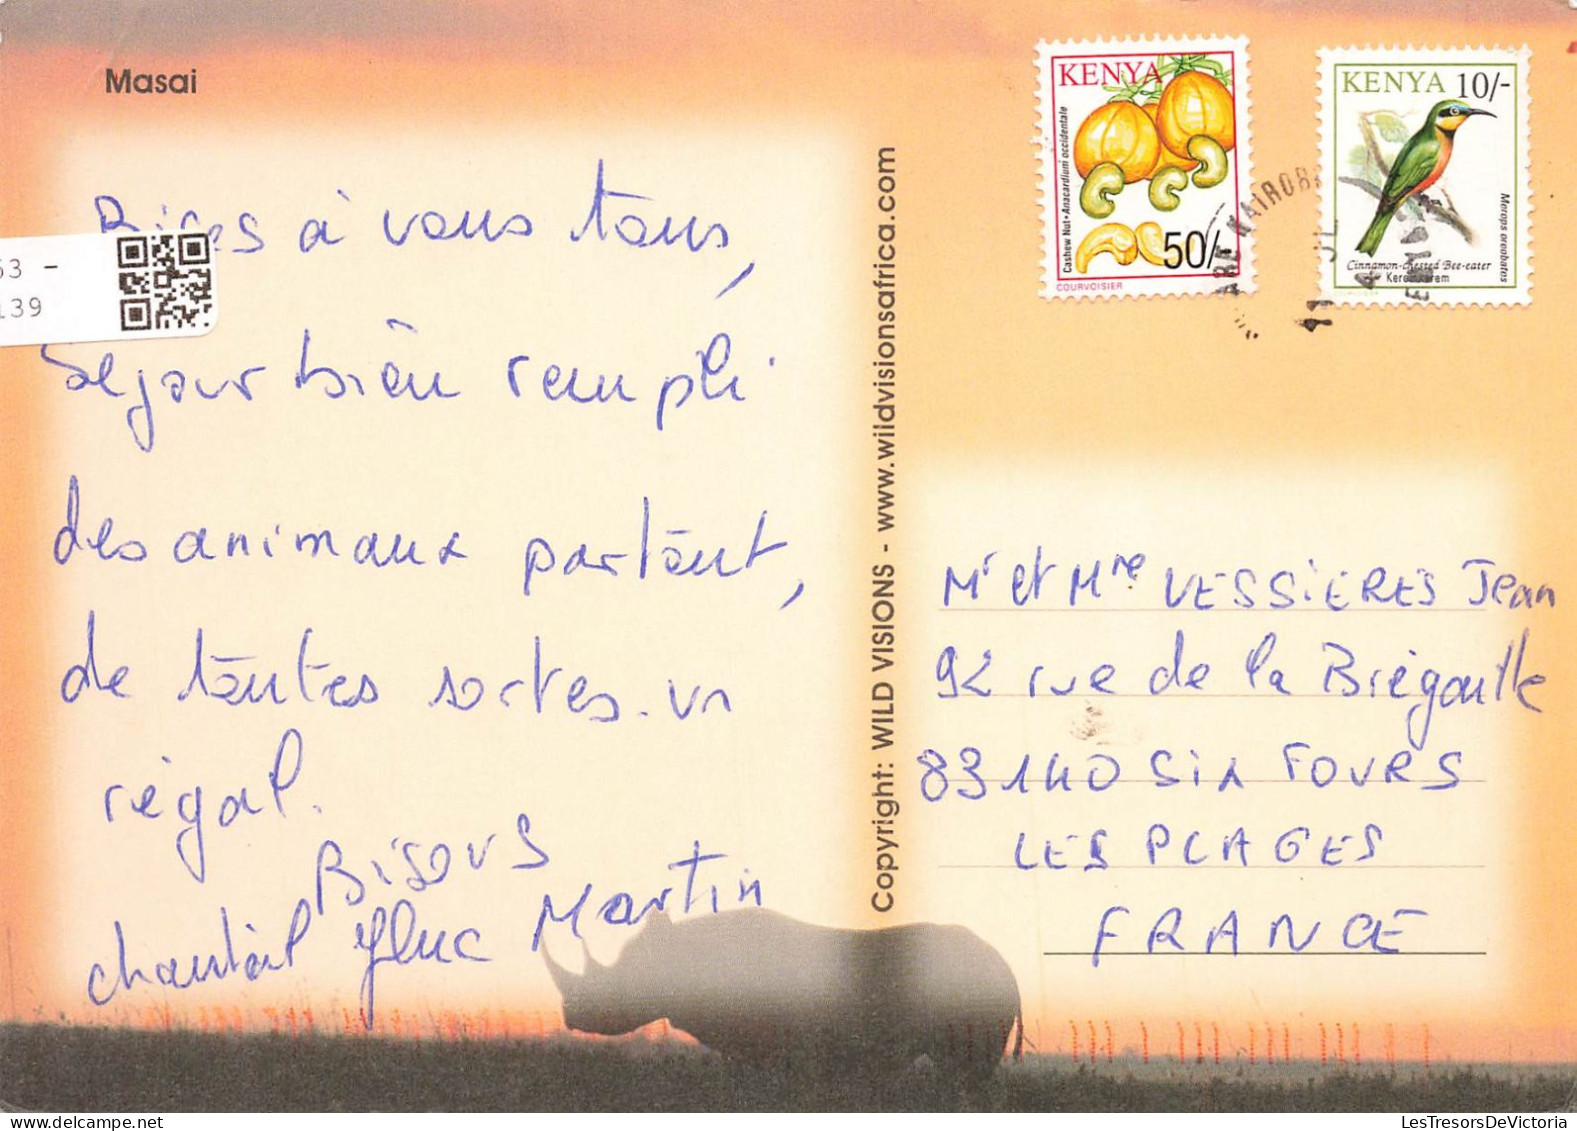 Masai
Bises à vous tous,
53 -
139
Séjour bien rempli
des animaux partout,
de toutes sortes. un
régal.
Bisous
chantal Jluc Martin
Copyright: WILD VISIONS - www.wildvisionsafrica.com
KENYA
Cashew Nut • Anacardium occidentale
50/-
COURVOISIER
KENYA 10/-
Merops oreobates
Cinnamon-chested Bee-eater
Keremkerem
NAIROBI
Mr et Mme VESSIERES Jean
92 rue de la Brégaille
83140 SIX FOURS
LES PLAGES
FRANCE
LesTresorsDeVictoria.com